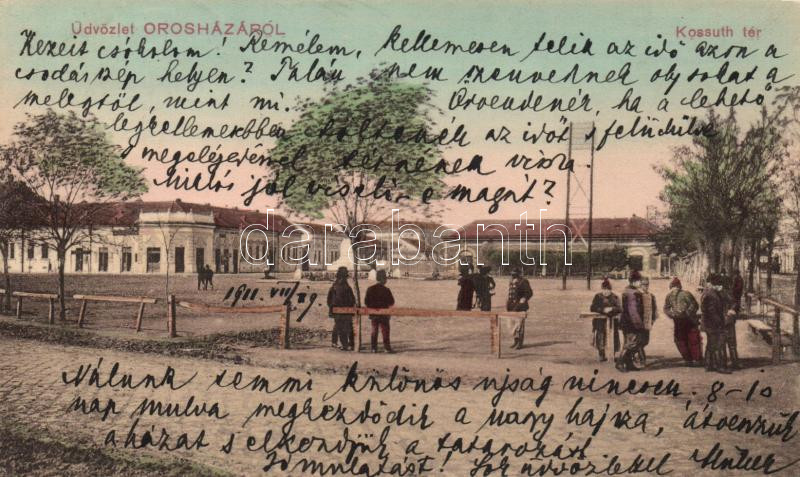 Üdvözlet OROSHÁZÁRÓL
Kossuth tér
Kezeit csókolom! Remélem, kellemesen telik az idő azon a
csodás szép helyen? Talán nem szenvednek oly sokat a
melegtől, mint mi. Örvendenék, ha a lehető
legkellemesebben töltenék az időt s felüdülve
megelégedéssel térnének vissza.
Miklós jól viseli-e magát?
darabanth
1911. VII/29.
Nálunk semmi különös ujság nincsen, 8-10
nap mulva megkezdődik a nagy hajsza, átvesszük
a házat s elkezdjük a tatarozást
Jó mulatást! Sok üdvözlettel